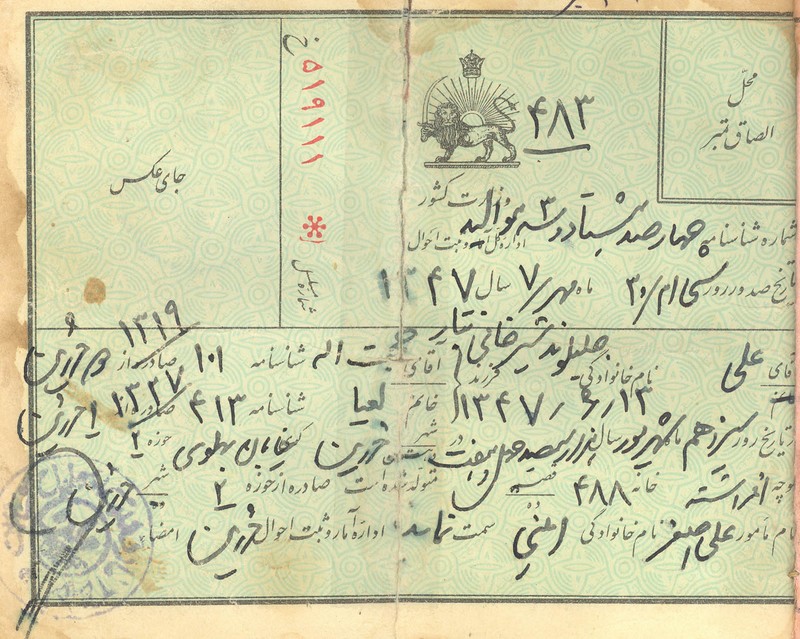 محلّ
الصاق تمبر
جای عکس
خ ۵۱۹۱۱۱
شماره مسلسل
۴۸۳
وزارت کشور
اداره کل آمار و ثبت احوال
شماره شناسنامه چهارصد هشتاد و سه
تاریخ صدور روز سی ام/۳۰ ماه مهر/۷ سال ۱۳۴۷
۱۳۱۹
آقای علی نام خانوادگی جلیلوند شیرخانی تبار فرزند آقای اله شناسنامه ۱۰۱ صادره از
۱۳۴۷/۶/۱۳ خانم لعیا شناسنامه ۴۱۳ صادره از ۱۳۲۷
در تاریخ روز سیزدهم ماه شهریور سال هزار سیصد چهل و هفت در شهر قزوین کوی خیابان پهلوی حوزه ۲
کوچه افراشته خانه ۴۸۸ متولد شده است صادره از حوزه ۲ شهر قزوین
نام مأمور علی اصغر نام خانوادگی سمت نماینده اداره آمار و ثبت احوال قزوین امضاء